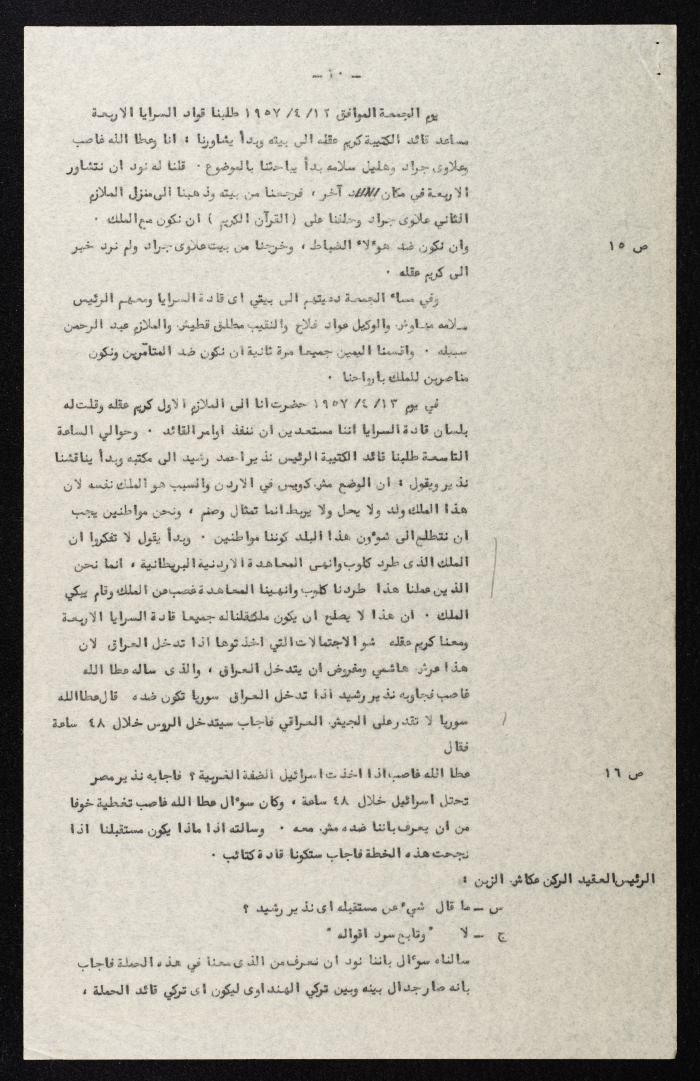 ـ ١٠ ـ
يوم الجمعة الموافق ١٢ /٤/ ١٩٥٧ طلبنا قواد السرايا الاربعة
مساعد قائد الكتيبة كريم عقله الى بيته وبدأ يشاورنا : انا وعطا الله غاصب
وعلاوى جراد وهليل سلامه بدأ يباحثنا بالموضوع . قلنا له نود ان نتشاور
الاربعة في مكان آخر ، فرجعنا من بيته وذهبنا الى منزل الملازم
الثاني علاوى جراد وحلفنا على ( القرآن الكريم ) ان نكون مع الملك .
ص ١٥ وان نكون ضد هوءلاء الضباط ، وخرجنا من بيت علاوى جراد ولم نرد خبر
الى كريم عقله .
وفي مساء الجمعة دعيتهم الى بيتي اى قادة السرايا ومعهم الرئيس
سلامه والوكيل عواد فلاح والنقيب مطلق قطيش والملازم عبد الرحمن
سبيله . واقسمنا اليمين جميعا مرة ثانية ان نكون ضد المتآمرين ونكون
مناصرين للملك بارواحنا .
في يوم ١٣ /٤/ ١٩٥٧ حضرت انا الى الملازم الاول كريم عقله وقلت له
بلسان قادة السرايا اننا مستعدين ان ننفذ اوامر القائد . وحوالي الساعة
التاسعة طلبنا قائد الكتيبة الرئيس نذير احمد رشيد الى مكتبه وبدأ يناقشنا
نذير ويقول : ان الوضع مش كويس في الاردن والسبب هو الملك نفسه لان
هذا الملك ولد ولا يحل ولا يربط انما تمثال وصنم ، ونحن مواطنين يجب
ان نتطلع الى شوءون هذا البلد كوننا مواطنين . وبدأ يقول لا تفكروا ان
الملك الذى طرد كلوب وانهى المعاهدة الاردنية البريطانية ، انما نحن
الذين عملنا هذا طردنا كلوب وانهينا المعاهدة غصب عن الملك وقام يبكي
الملك . ان هذا لا يصلح ان يكون ملك فقلنا له جميعا قادة السرايا الاربعة
ومعنا كريم عقله شو الاحتمالات التي اخذتوها اذا تدخل العراق لان
هذا عرش هاشمي ومفروض ان يتدخل العراق ، والذى ساله عطا الله
غاصب فجاوبه نذير رشيد اذا تدخل العراق سوريا تكون ضده قال عطا الله
سوريا لا تقدر على الجيش العراقي فاجاب سيتدخل الروس خلال ٤٨ ساعة
فقال
ص ١٦ عطا الله غاصب اذا اخذت اسرائيل الضفة الغربية ؟ فاجابه نذير مصر
تحتل اسرائيل خلال ٤٨ ساعة ، وكان سوءال عطا الله غاصب تغطية خوفا
من ان يعرف باننا ضده مش معه . وسالته اذا ماذا يكون مستقبلنا اذا
نجحت هذه الخطة فاجاب ستكونا قادة كتائب .
الرئيس العقيد الركن عكاش الزبن :
س ـ ما قال شيء عن مستقبله اى نذير رشيد ؟
ج ـ لا " وتابع سرد اقواله "
سالناه سوءال باننا نود ان نعرف من الذى معنا في هذه الحملة فاجاب
بانه صار جدال بينه وبين تركي الهنداوى ليكون اى تركي قائد الحملة ،